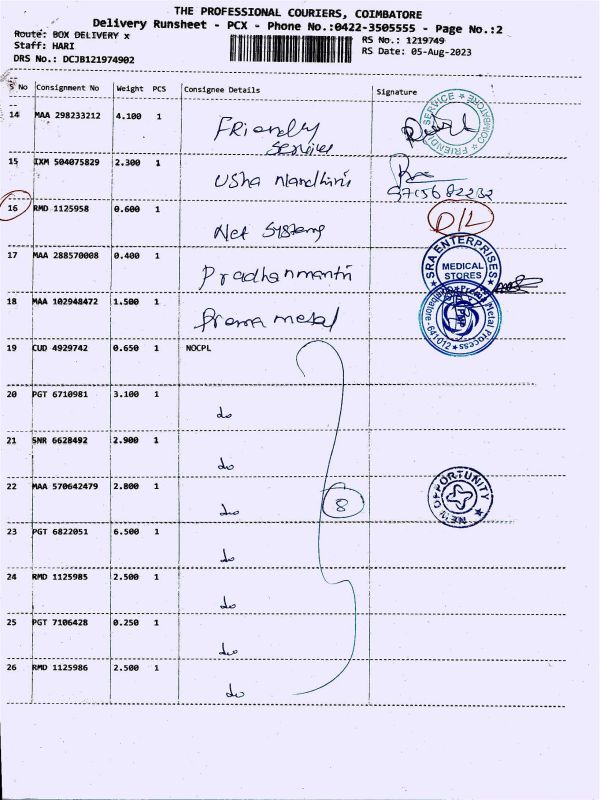 THE PROFESSIONAL COURIERS, COIMBATORE
Delivery Runsheet - PCX - Phone No.:0422-3505555 - Page No.:2
Route: BOX DELIVERY x
RS No.: 1219749
Staff: HARI
RS Date: 05-Aug-2023
DRS No.: DCJB121974902
S No Consignment No Weight PCS Consignee Details Signature
14 MAA 298233212 4.100 1 Friendly
Services
SERVICE ★ FRIENDLY COIMBATORE
15 IXM 504075829 2.300 1 Usha Nandhini
9715682232
16 RMD 1125958 0.600 1 Net Systems D/L
17 MAA 288570008 0.400 1 Pradhanmantri
SRA ENTERPRISES
MEDICAL
STORES
18 MAA 102948472 1.500 1 Prema metal
Prema Metal Process
Coimbatore - 641012
19 CUD 4929742 0.650 1 NOCPL
20 PGT 6710981 3.100 1 do
21 SNR 6628492 2.900 1 do
22 MAA 570642479 2.800 1 do 8
NEW OPPORTUNITY
23 PGT 6822051 6.500 1 do
24 RMD 1125985 2.500 1 do
25 PGT 7106428 0.250 1 do
26 RMD 1125986 2.500 1 do